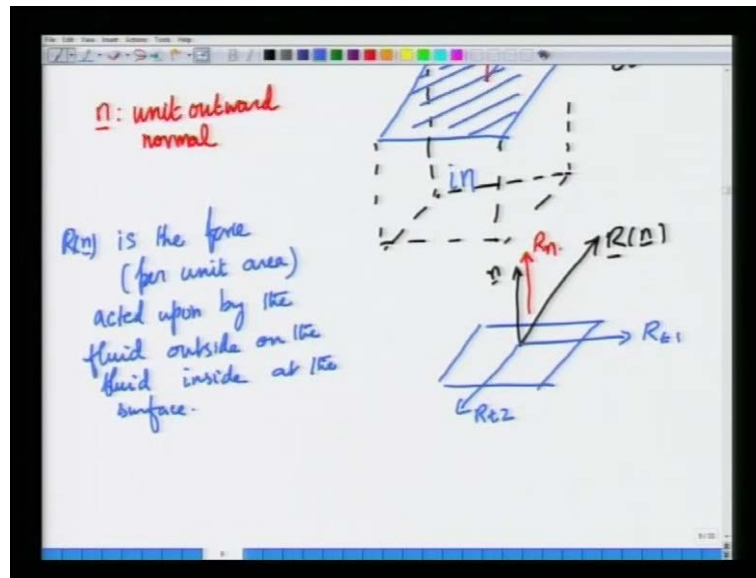 File Edit View Insert Actions Tools Help
n: unit outward
normal
in
R(n) is the force
(per unit area)
acted upon by the
fluid outside on the
fluid inside at the
surface.
n
Rn.
R(n)
Rt1
Rt2